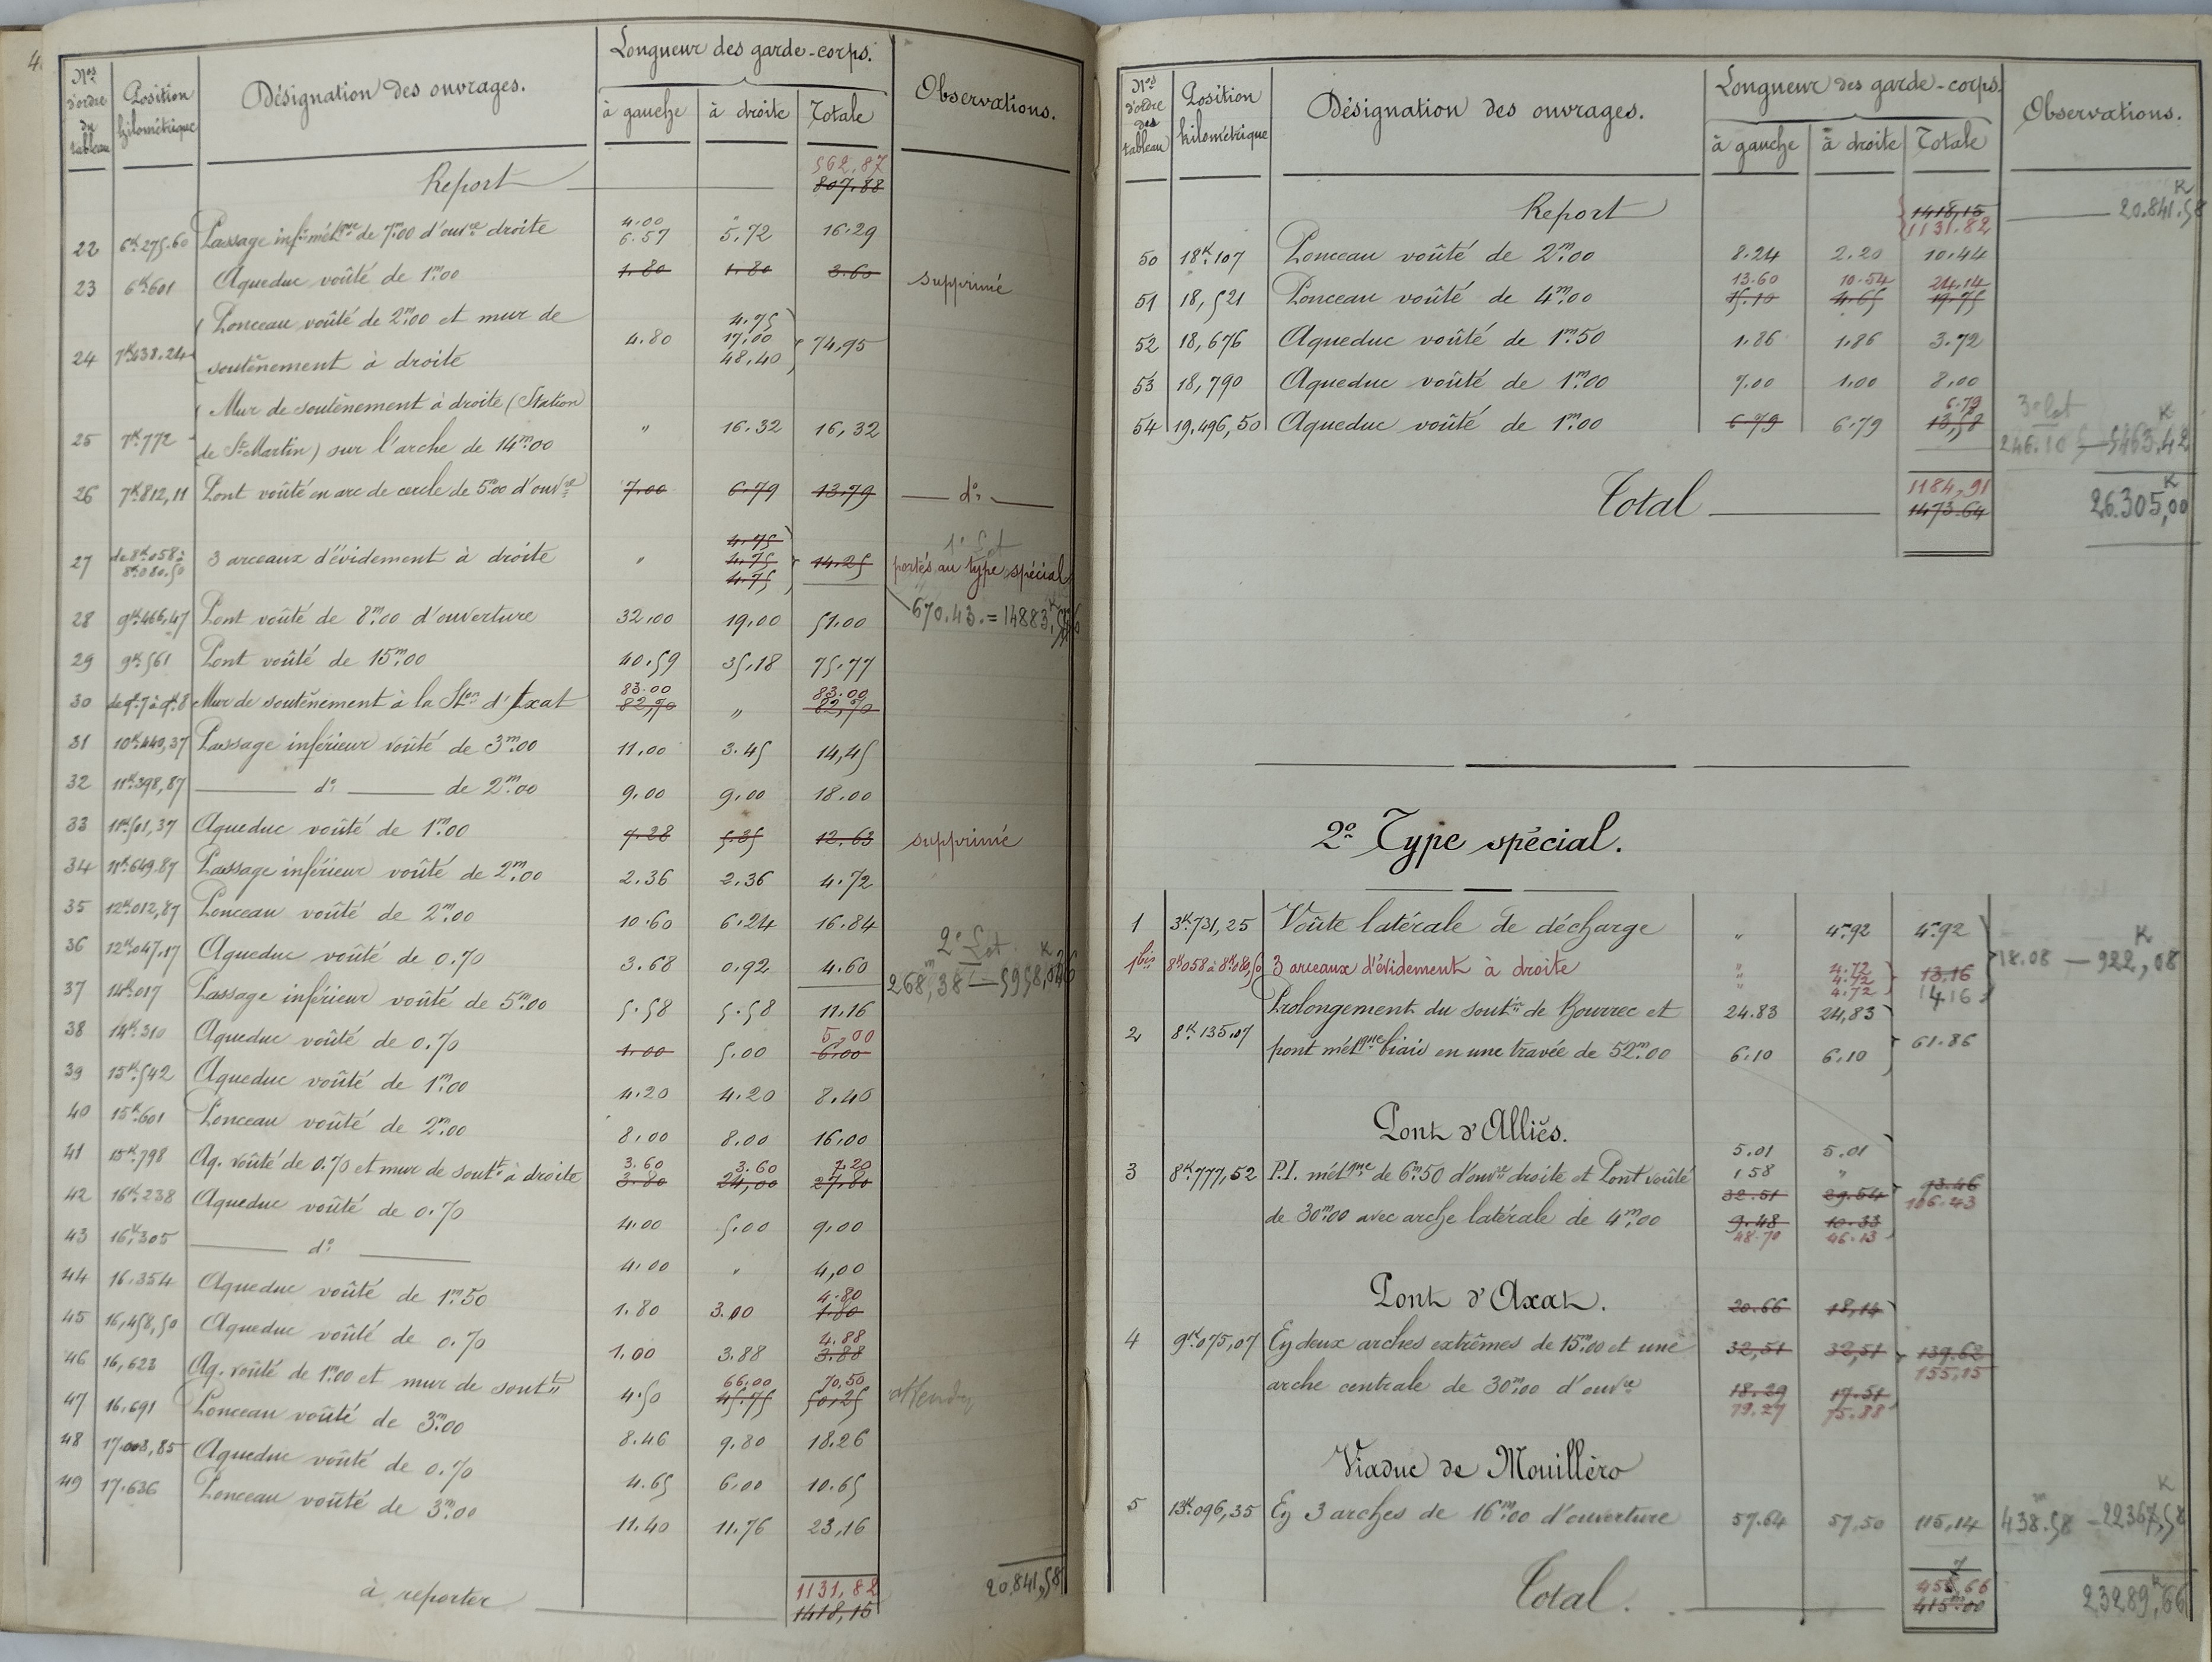 Nos d'ordre du tableau | Position kilométrique | Désignation des ouvrages. | Longueur des garde-corps. | Observations.
à gauche | à droite | Totale
562.87
Report 807.88
22 | 6K275.60 | Passage infr métque de 7m00 d'ouvre droite | 4.00 6.57 | " 5.72 | 16.29
23 | 6K601 | Aqueduc voûté de 1m00 | 1.80 | 1.80 | 3.60 | supprimé
24 | 7K638.24 | Ponceau voûté de 2m00 et mur de | 4.80 | 4.75 17.00 48.40 | 74,95
soutènement à droite
25 | 7K772 | Mur de soutènement à droite (Station | " | 16.32 | 16,32
de St Martin) sur l'arche de 14m00
26 | 7K812,11 | Pont voûté en arc de cercle de 5m00 d'ouvre | 7.00 | 6.79 | 13.79 | do
27 | de 8K058 à 8K080.50 | 3 arceaux d'évidement à droite | " | 4.75 4.75 4.75 | 14.25 | 1e Lot portés au type spécial
28 | 9K466,47 | Pont voûté de 8m00 d'ouverture | 32,00 | 19,00 | 51.00 | 670.43. = 14883K
29 | 9K561 | Pont voûté de 15m00 | 40.59 | 35,18 | 75.77
30 | de 9K7 à 9K8 | Mur de soutènement à la Ston d'Axat | 83.00 82,70 | " | 83.00 82,70
31 | 10K440,37 | Passage inférieur voûté de 3m00 | 11.00 | 3.45 | 14,45
32 | 11K398,87 | do de 2m00 | 9.00 | 9,00 | 18.00
33 | 11K501,37 | Aqueduc voûté de 1m00 | 7.28 | 5.35 | 12.63 | supprimé
34 | 11K649.87 | Passage inférieur voûté de 2m00 | 2.36 | 2.36 | 4.72
35 | 12K012,87 | Ponceau voûté de 2m00 | 10.60 | 6.24 | 16.84
36 | 12K047.17 | Aqueduc voûté de 0.70 | 3.68 | 0.92 | 4.60 | 2e Lot 268,38
37 | 14K017 | Passage inférieur voûté de 5m00 | 5.58 | 5.58 | 11.16
38 | 14K310 | Aqueduc voûté de 0.70 | 1.00 | 5.00 | 5,00 6.00
39 | 15K542 | Aqueduc voûté de 1m00 | 4.20 | 4.20 | 8.40
40 | 15K601 | Ponceau voûté de 2m00 | 8.00 | 8.00 | 16.00
41 | 15K798 | Aq. voûté de 0.70 et mur de soutt à droite | 3.60 3.80 | 3.60 24,00 | 7.20 27.80
42 | 16K238 | Aqueduc voûté de 0.70 | 4.00 | 5.00 | 9.00
43 | 16K305 | do | 4.00 | " | 4,00
44 | 16.354 | Aqueduc voûté de 1m50 | 1.80 | 3.00 | 4.80 1.80
45 | 16,458,50 | Aqueduc voûté de 0.70 | 1.00 | 3.88 | 4.88 3.88
46 | 16,623 | Aq. voûté de 1m00 et mur de soutt | 4.50 | 66.00 45.75 | 70,50 50.25 | attendre
47 | 16.691 | Ponceau voûté de 3m00 | 8.46 | 9.80 | 18.26
48 | 17.003,85 | Aqueduc voûté de 0.70 | 4.65 | 6.00 | 10.65
49 | 17.636 | Ponceau voûté de 3m00 | 11.40 | 11.76 | 23,16
à reporter 1131,82 1418,15 | 20.841,58
Nos d'ordre des tableau | Position kilométrique | Désignation des ouvrages. | Longueur des garde-corps. | Observations.
à gauche | à droite | Totale
Report 1418,15 1131.82 | 20.841.58K
50 | 18K107 | Ponceau voûté de 2m00 | 8.24 | 2.20 | 10.44
51 | 18,521 | Ponceau voûté de 4m00 | 13.60 15.10 | 10.54 4.65 | 24.14 19.75
52 | 18,676 | Aqueduc voûté de 1m50 | 1.86 | 1.86 | 3.72
53 | 18,790 | Aqueduc voûté de 1m00 | 7.00 | 1.00 | 8,00
54 | 19.496,50 | Aqueduc voûté de 1m00 | 6.79 | 6.79 | 6.79 13,58 | 3e lot 246.10 — 5463K.42
Total 1184,91 1473.64 | 26.305,00K
2o Type spécial.
1 | 3K731,25 | Voûte latérale de décharge | " | 4m92 | 4m92
1bis | 8K058 à 8K080,50 | 3 arceaux d'évidement à droite | " " " | 4.72 4.72 4.72 | 13.16 14.16 | 18.08 — 922,08K
2 | 8K135.07 | Prolongement du soutin de Bourrec et | 24.83 | 24,83 | 61.86
pont métque biais en une travée de 52m00 | 6.10 | 6.10
Pont d'Alliès.
3 | 8K777,52 | P.I. métque de 6m50 d'ouvre droite et Pont voûté | 5.01 1.58 32.51 | 5.01 " 29.54 | 93.46 106.43
de 30m00 avec arche latérale de 4m00 | 9.48 48.70 | 10.33 46.13
Pont d'Axat. | 20.66 | 18,14
4 | 9K075,07 | En deux arches extrêmes de 15m00 et une | 32,51 | 32,51 | 139.62 155,15
arche centrale de 30m00 d'ouvre | 18.29 79.27 | 17.51 75.88
Viaduc de Mouilléro
5 | 13K096,35 | En 3 arches de 16m00 d'ouverture | 57.64 | 57.50 | 115,14 | 438.58m — 22367,58K
Total. 415m00 | 23289,66K